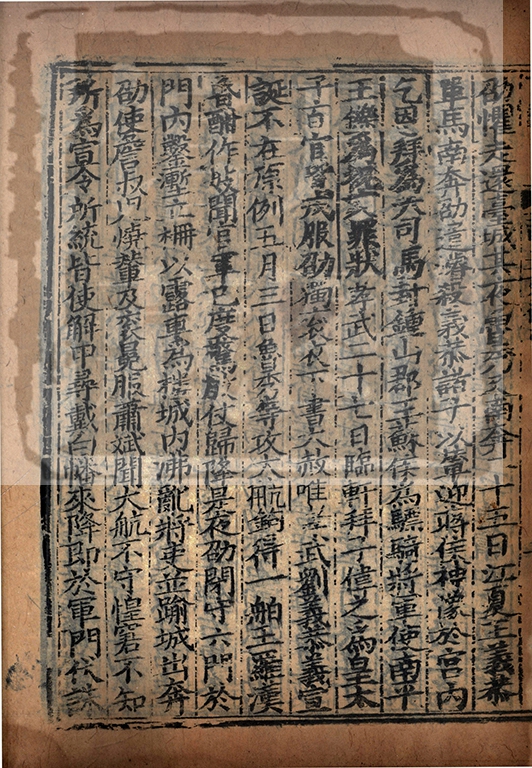 劭懼走還臺城其夜魯秀又南奔二十五日江夏王義恭
單馬南奔劭遣濬殺義恭諸子以輦迎蔣侯神像於宮內
乞恩拜為大司馬封鍾山郡王蘇侯為驃騎將軍使南平
王鑠為祝文罪狀孝武二十七日臨軒拜子偉之為皇太
子百官皆戎服劭獨袞衣下書大赦唯孝武劉義恭義宣
誕不在原例五月三日魯秀等攻大航鉤得一舶王羅漢
昏酣作妓聞官軍已度驚放仗歸降是夜劭閉守六門於
門內鑿塹立柵以露車為樓城內沸亂將吏並踰城出奔
劭使詹叔兒燒輦及袞冕服蕭斌聞大航不守惶窘不知
所為宣令所統皆使解甲尋戴白幡來降即於軍門伏誅